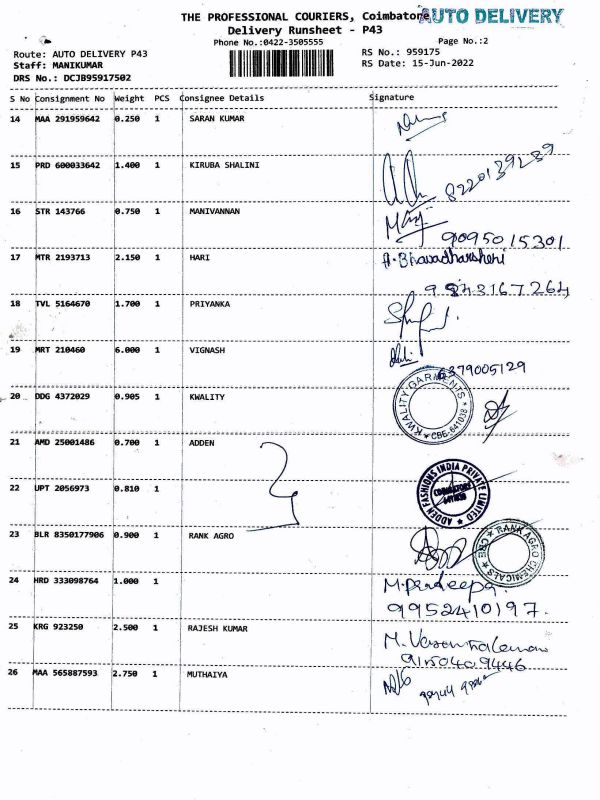 THE PROFESSIONAL COURIERS, Coimbatore
AUTO DELIVERY
Delivery Runsheet - P43
Phone No.:0422-3505555
Page No.:2
Route: AUTO DELIVERY P43
RS No.: 959175
Staff: MANIKUMAR
RS Date: 15-Jun-2022
DRS No.: DCJB95917502
S No Consignment No Weight PCS Consignee Details Signature
14 MAA 291959642 0.250 1 SARAN KUMAR
15 PRD 600033642 1.400 1 KIRUBA SHALINI
8220139239
16 STR 143766 0.750 1 MANIVANNAN
9095015301
17 MTR 2193713 2.150 1 HARI
A.Bhavadharsheni
18 TVL 5164670 1.700 1 PRIYANKA
19 MRT 210460 6.000 1 VIGNASH
6379005129
20 DDG 4372029 0.905 1 KWALITY
KWALITY GARMENTS
CBE-641038
21 AMD 25001486 0.700 1 ADDEN
22 UPT 2056973 0.810 1
ADDEN FASHIONS INDIA PRIVATE LIMITED
COIMBATORE
OFFICE
23 BLR 8350177906 0.900 1 RANK AGRO
RANK AGRO CHEMICALS
CBE
24 HRD 333098764 1.000 1
M.Pradeepa.
9952410197.
25 KRG 923250 2.500 1 RAJESH KUMAR
9150409446
26 MAA 565887593 2.750 1 MUTHAIYA